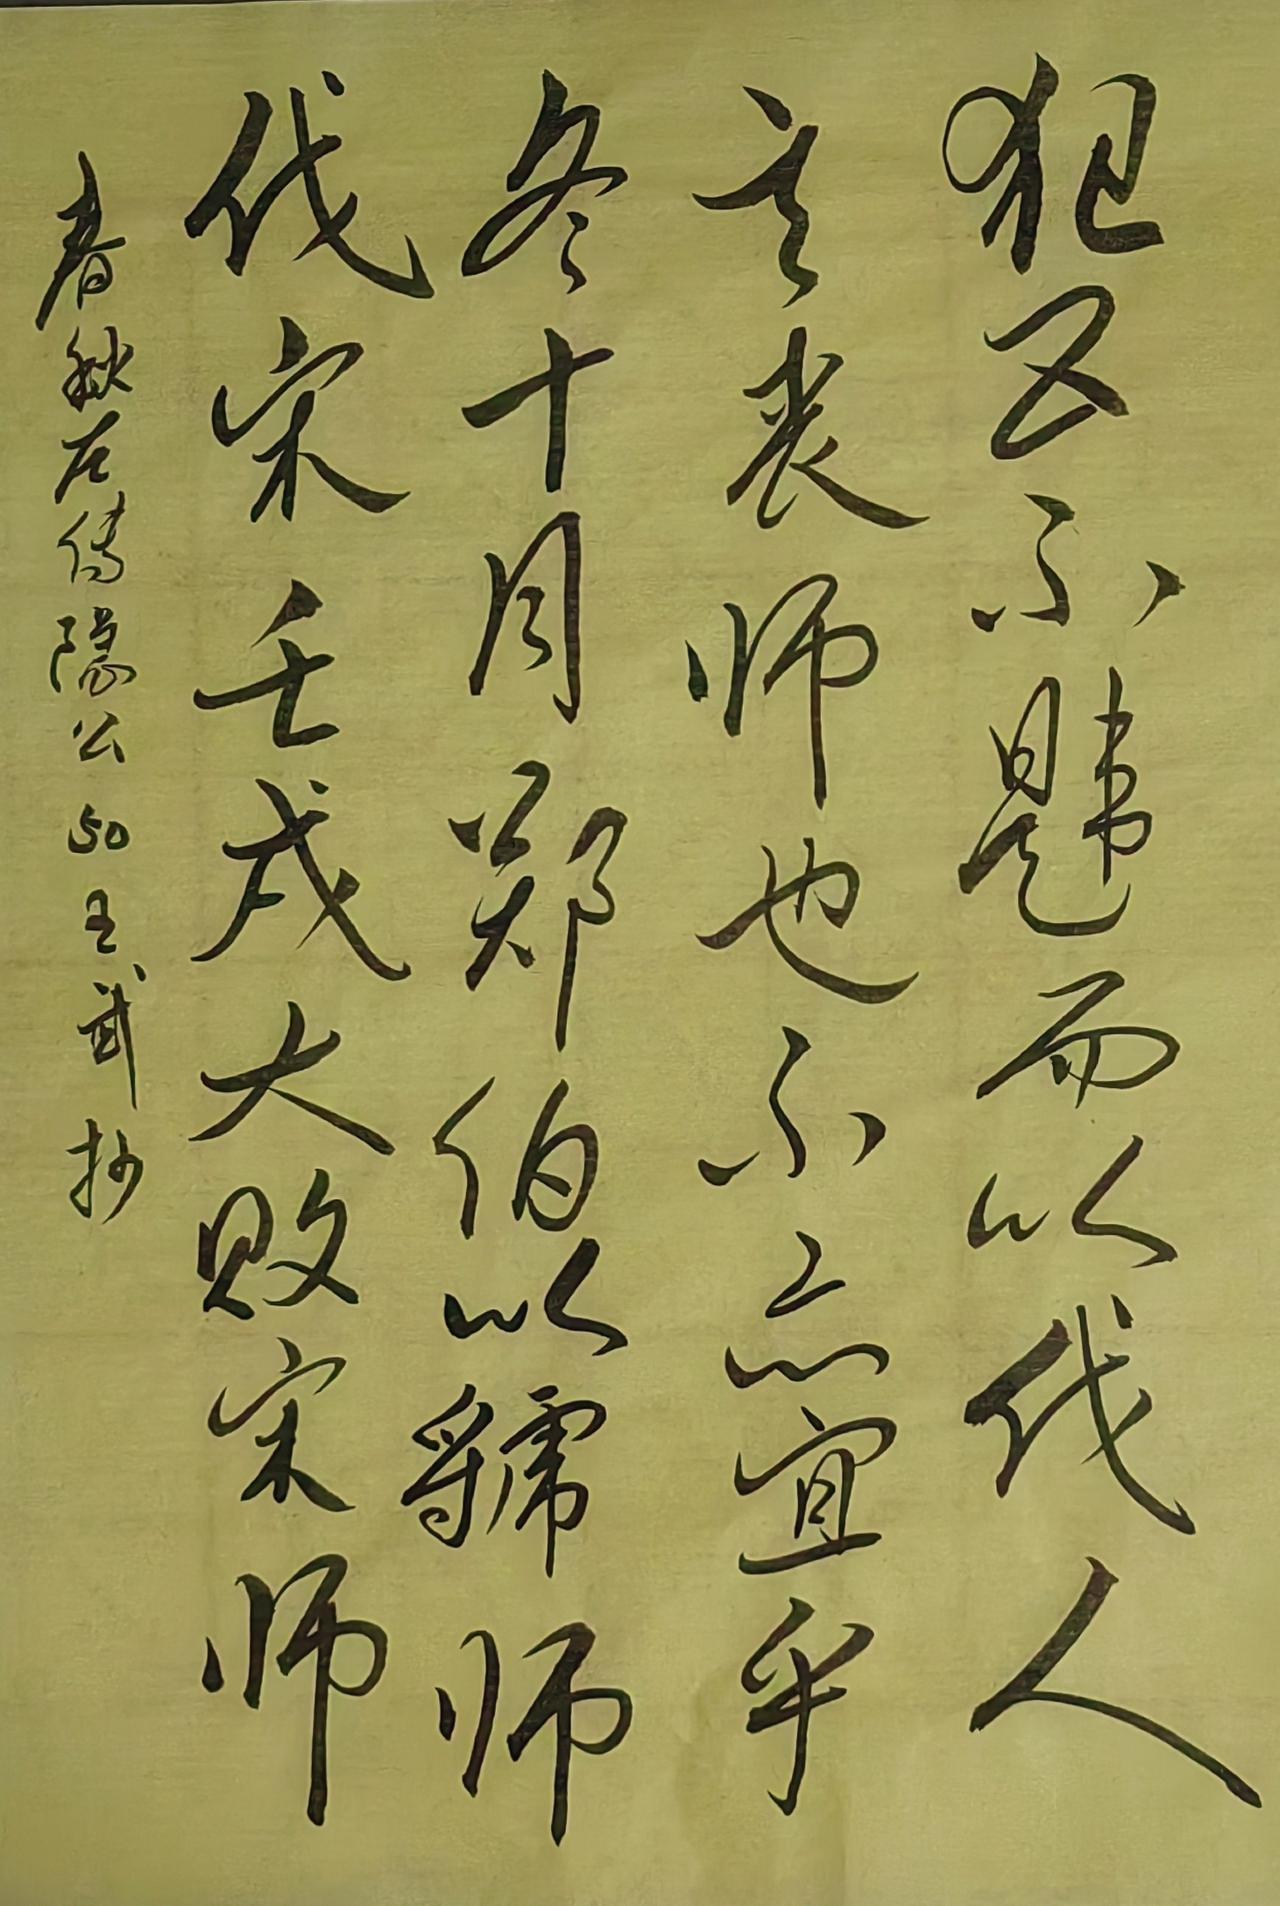 犯五不韪而以伐人
其丧师也不亦宜乎
冬十月郑伯以虢师
伐宋壬戌大败宋师
春秋左传隐公50王武抄